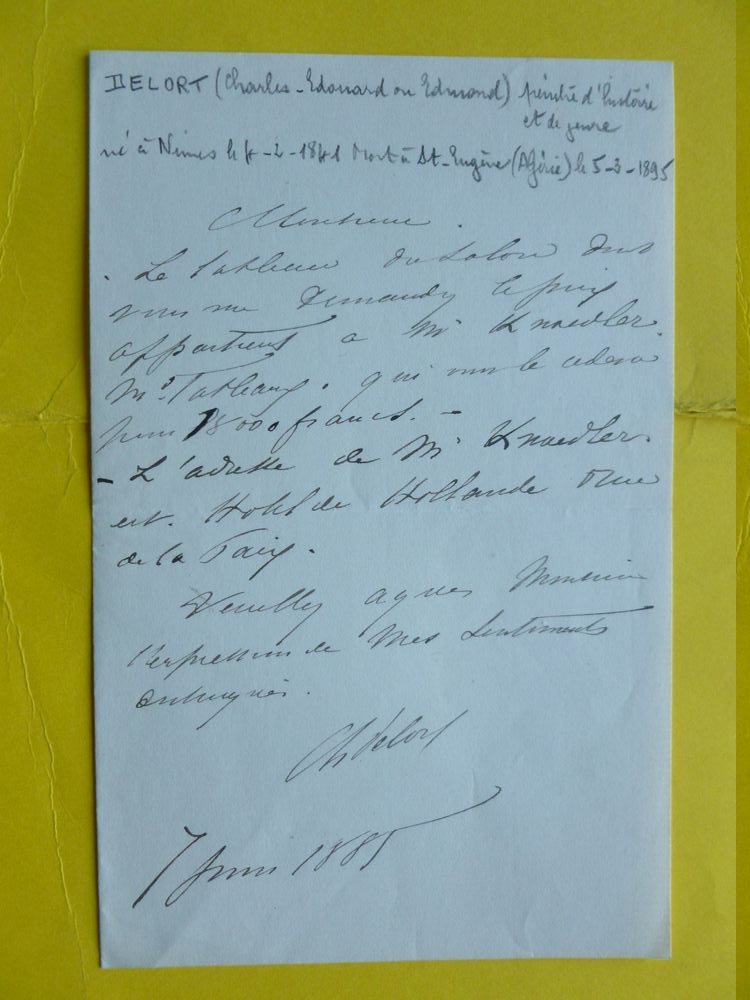 DELORT (Charles-Edouard ou Edmond) peintre d'histoire
et de genre
né à Nimes le 4-2-1841 Mort à St-Eugène (Algérie) le 5-3-1895
Monsieur.
Le tableau du Salon dont
vous me demandez le prix
appartient a Mr Knoedler.
Md Tableaux. qui vous le cedera
pour 18000 francs. -
- L'adresse de Mr Knoedler.
est. Hotel de Hollande rue
de la Paix.
Veuillez agréer Monsieur
l'expression de mes Sentiments
distingués.
Ch Delort
7 Juin 1885